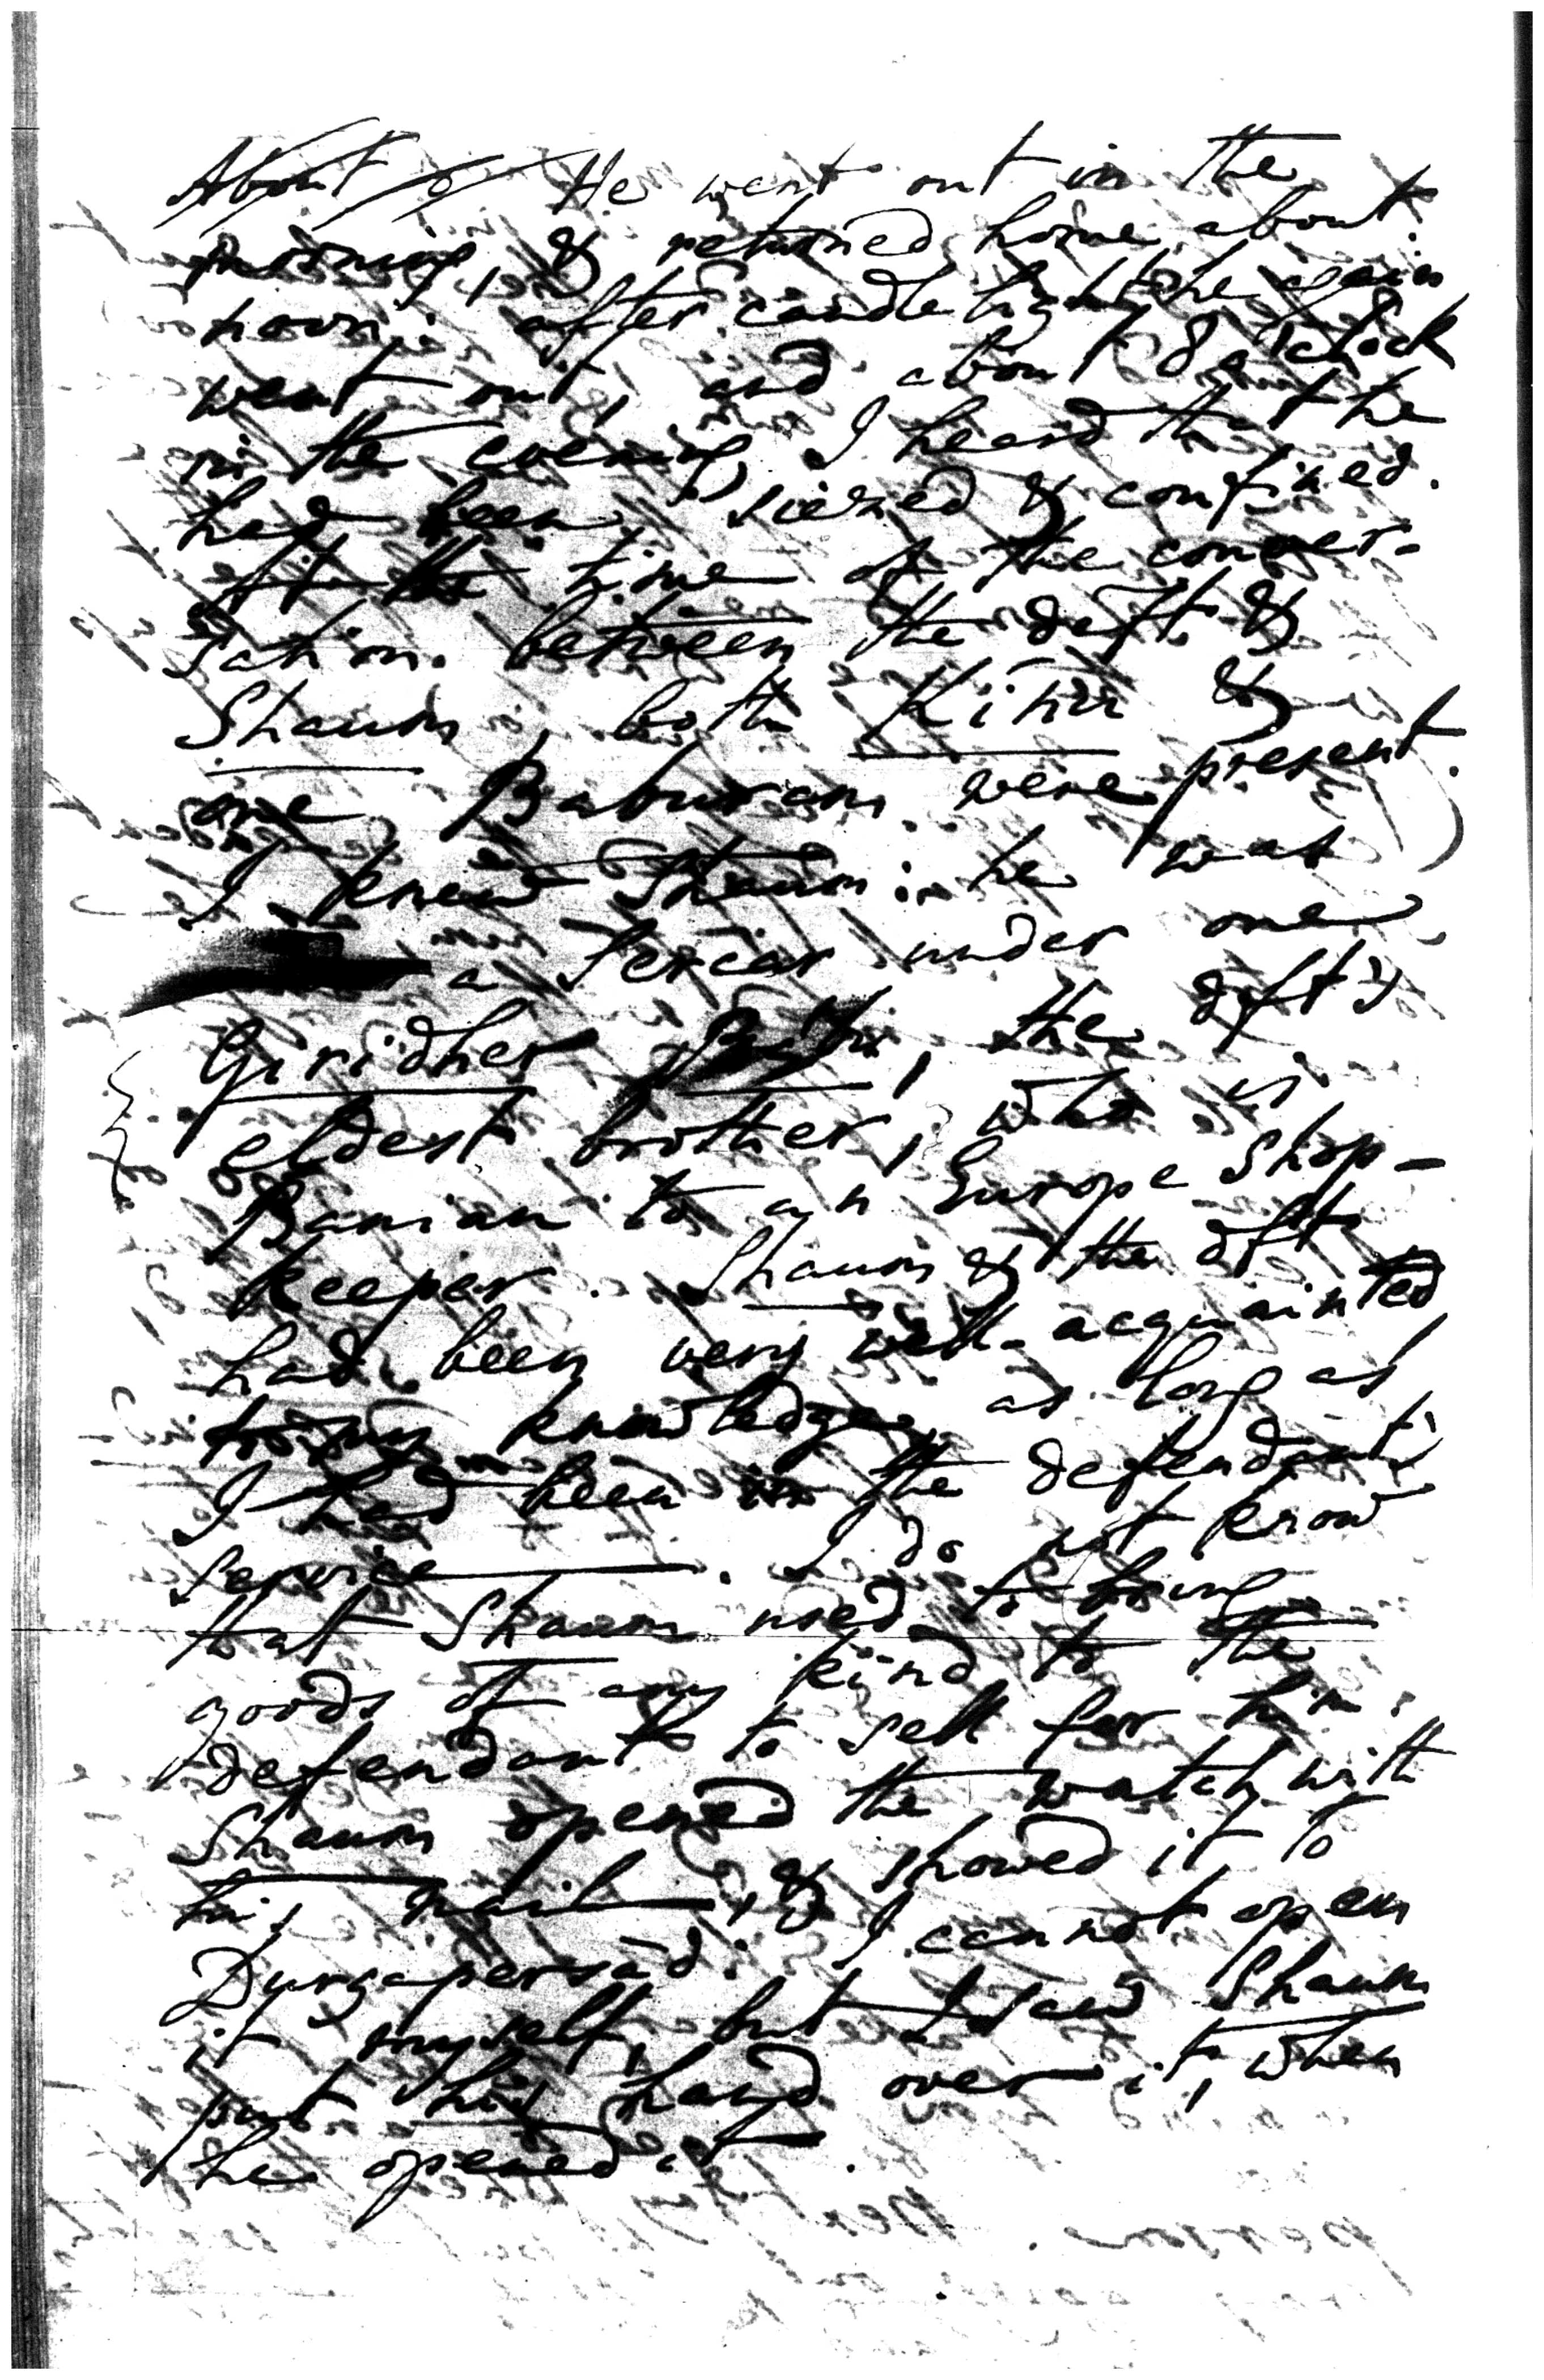 About 8 He went out in the
morning, & returned home about
noon: after candle light he again
went out, and about 8 o'clock
in the evening, I heard that he
had been siezed & confined.
At the time of the conver-
sation between the deft. &
Shaum, both Kinu &
one Baburam were present.
I knew Shaum: he was
a Sercar under one
Giridher, the deft's
eldest brother, who is
Banian to an Europe Shop-
keeper. Shaum & the dft.
had been very well acquainted,
to my knowledge, as long as
I had been in the defendant's
service. I do not know
that Shaum used to bring
goods of any kind to the
defendant to sell for him.
Shaum opened the watch with
his nail, & showed it to
Durgapersad. I cannot open
it myself, but I saw Shaum
put his hand over it, when
he opened it.